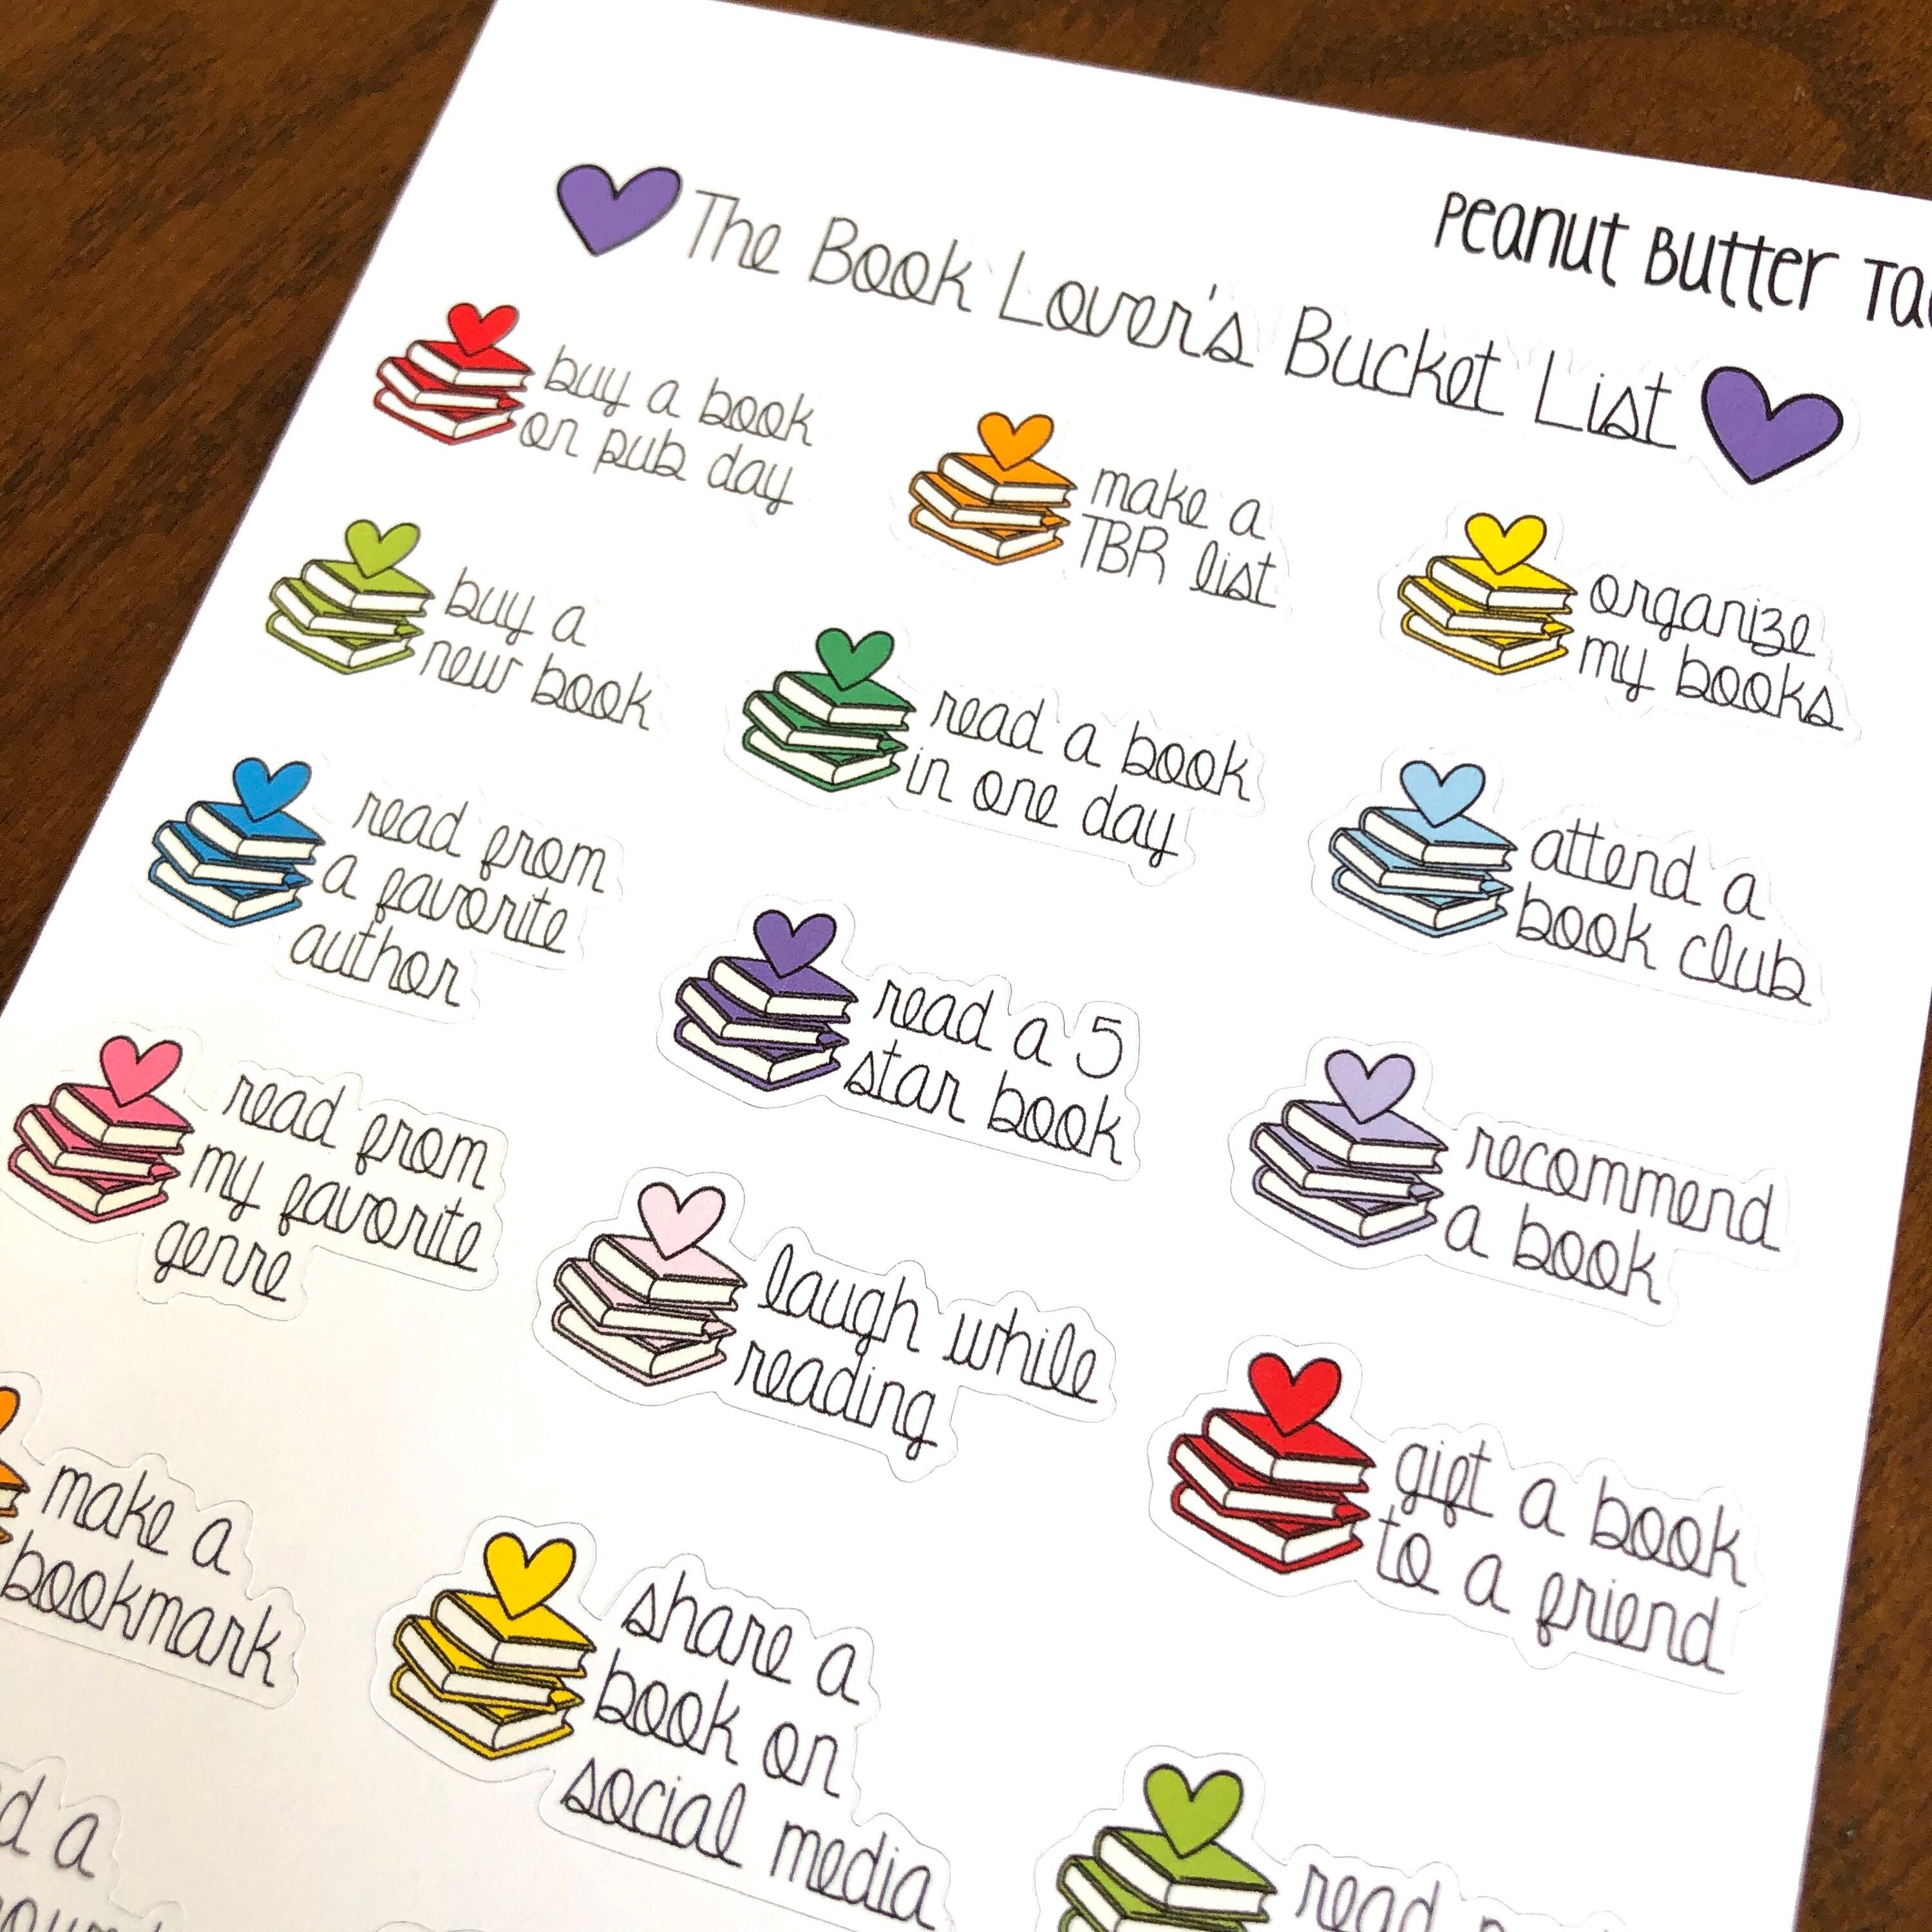 Peanut Butter
The Book Lover's Bucket List
buy a book
on pub day
make a
TBR list
organize
my books
buy a
new book
read a book
in one day
attend a
book club
read from
a favorite
author
read a 5
star book
recommend
a book
read from
my favorite
genre
laugh while
reading
gift a book
to a friend
make a
bookmark
share a
book on
social media
read
a